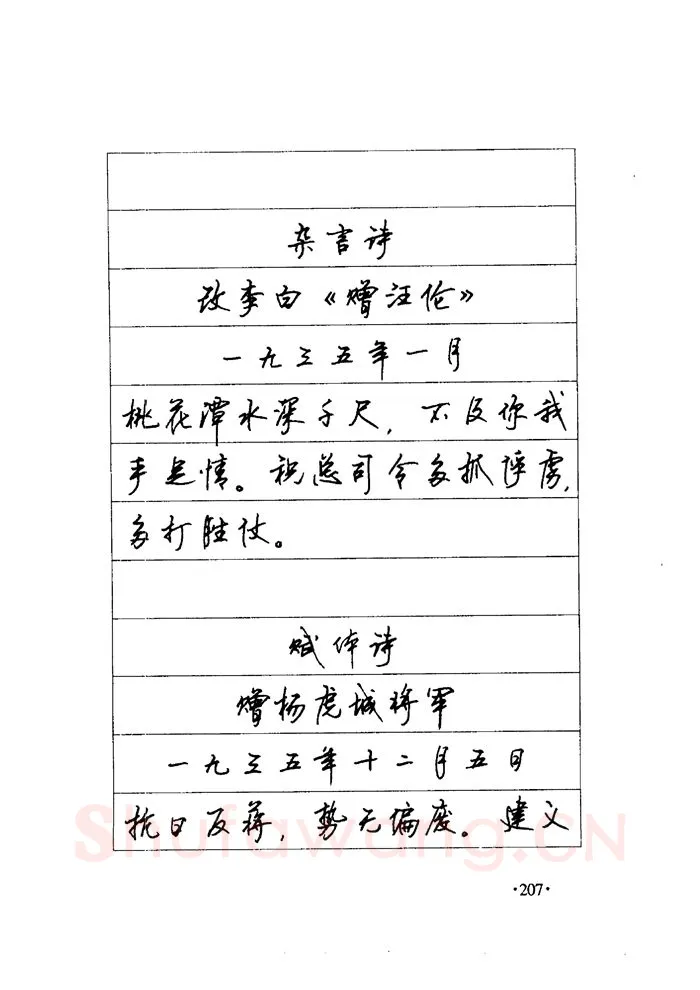 杂言诗
改李白《赠汪伦》
一九三五年一月
桃花潭水深千尺，不及你我
手足情。祝总司令多抓俘虏，
多打胜仗。
赋体诗
赠杨虎城将军
一九三五年十二月五日
抗日反蒋，势无偏废。建义
Shufawang.CN
·207·